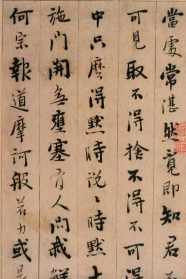 當處常湛然覓即知君
可見取不得捨不得不可
中只麼得默時說〻時默大
施門開無壅塞有人問我解
何宗報道摩訶般若力或是